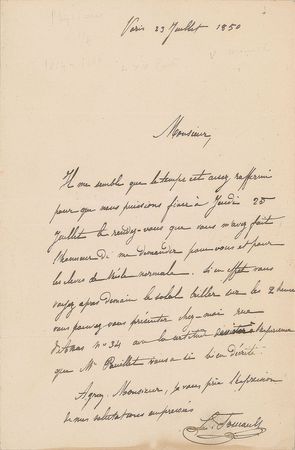 Paris 23 Juillet 1850
Monsieur,
Il me semble que le temps est assez raffermi
pour que nous puissions fixer à Jeudi 25
Juillet le rendez-vous que vous m'avez fait
l'honneur de me demander pour vous et pour
les élèves de l'école normale. Si en effet vous
voyez après demain le soleil briller sur les 2 heures
vous pouvez vous présenter chez-moi rue
d'Assas n° 34 avec la certitude d'assister à l'expérience
que Mr Pouillet vous a
Agréez, Monsieur, je vous prie l'expression
de mes salutations empressées
L. Foucault